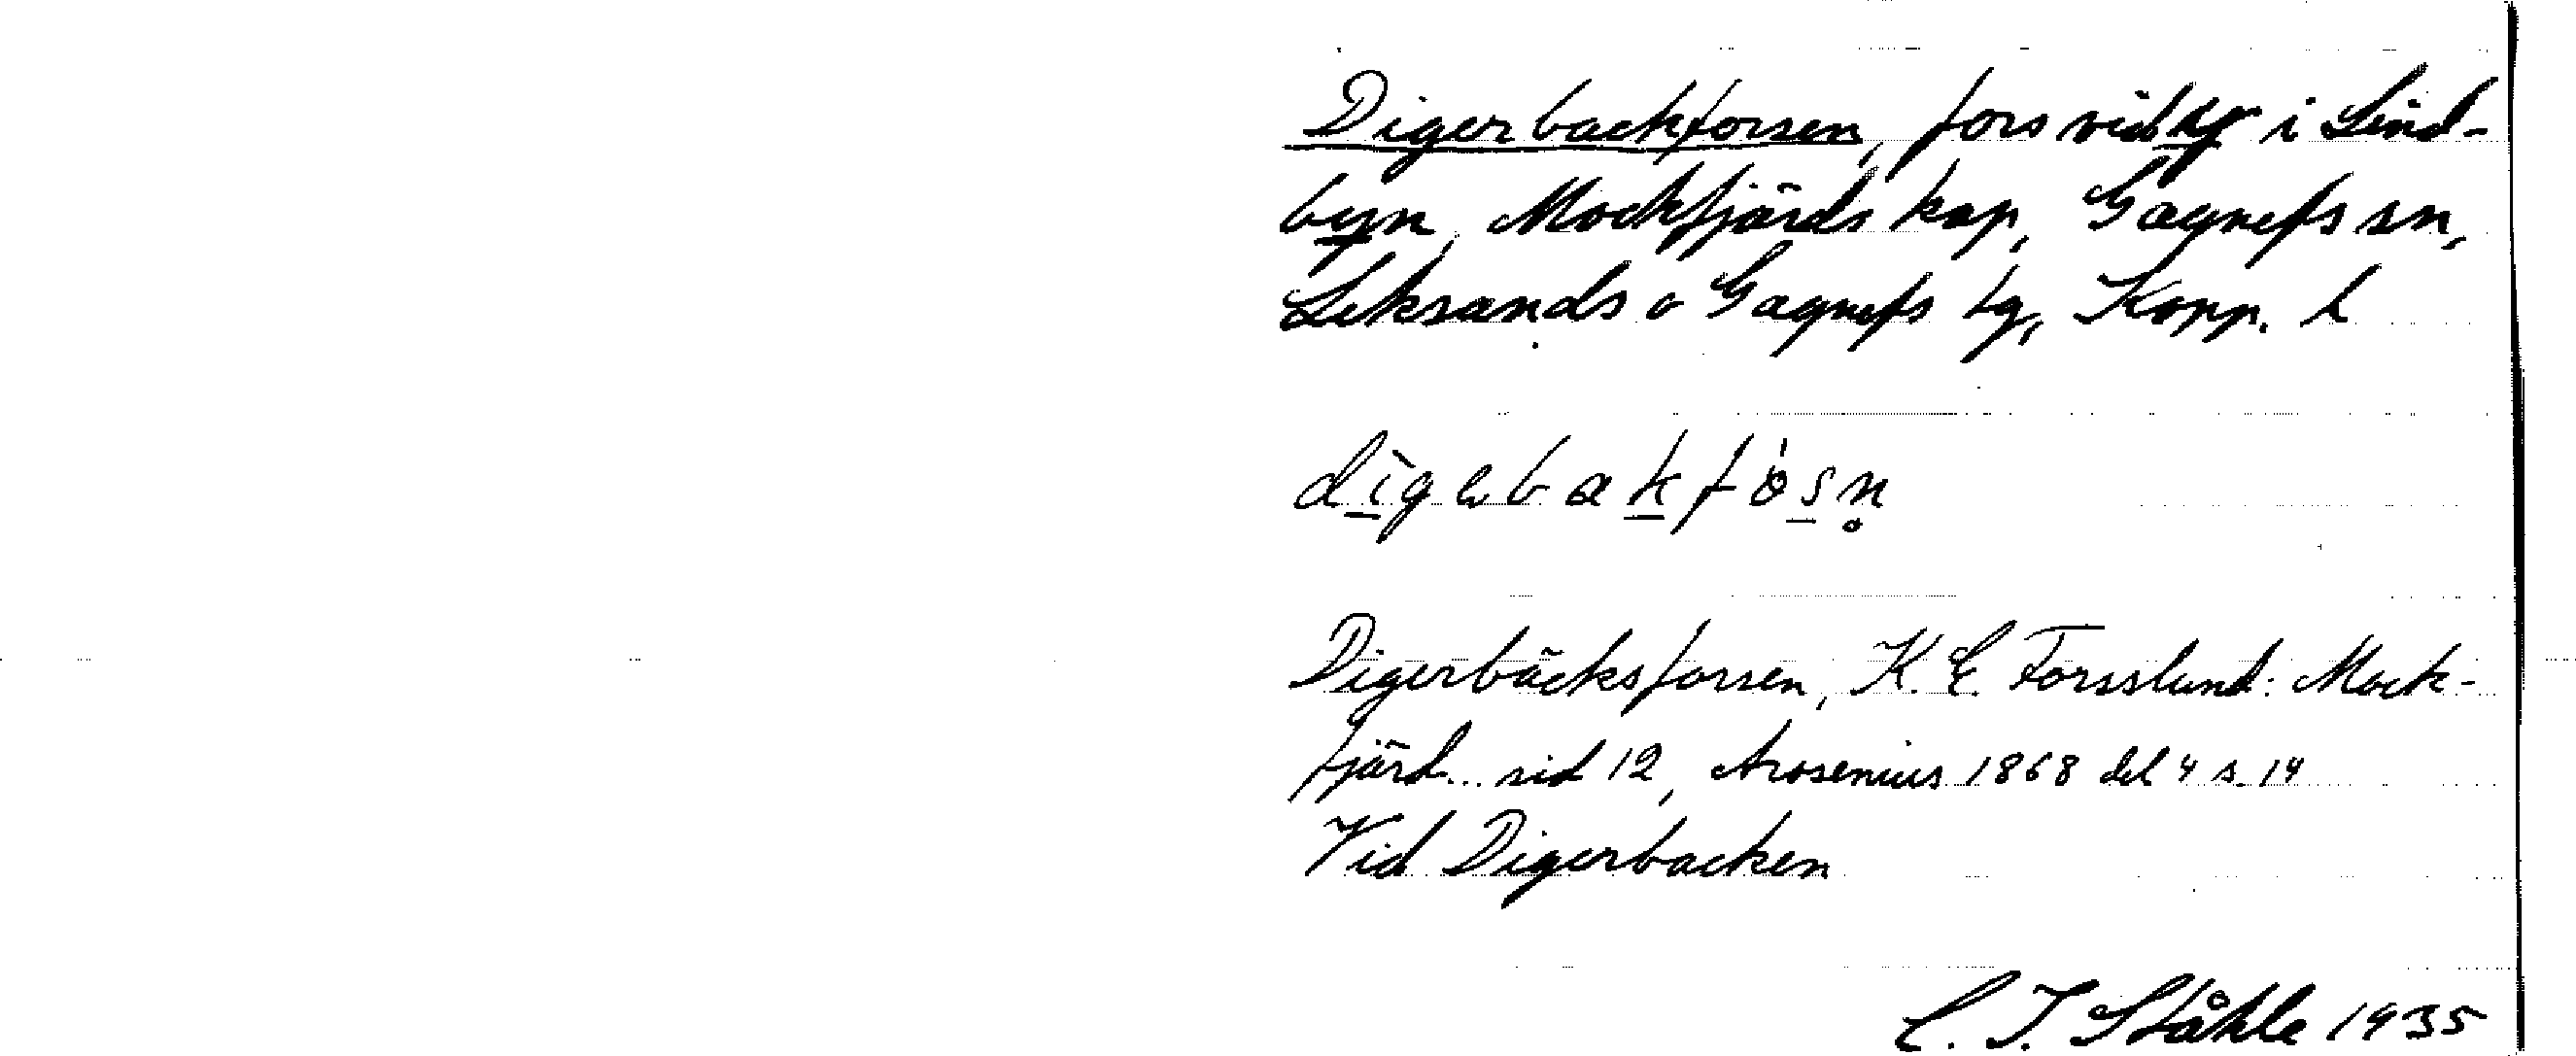 Digerbackforsen, fors vid by i Lind-
byn, Mockfjärds kap, Gagnefs sn,
Leksands o Gagnefs tg, Kopp. l
dīgebakfòsn̥
Digerbäcksforsen, K. E. Forsslund: Mock-
fjärd... sid 12, Arosenius 1868 del 4 s. 14
Vid Digerbacken
C. I. Ståhle 1935